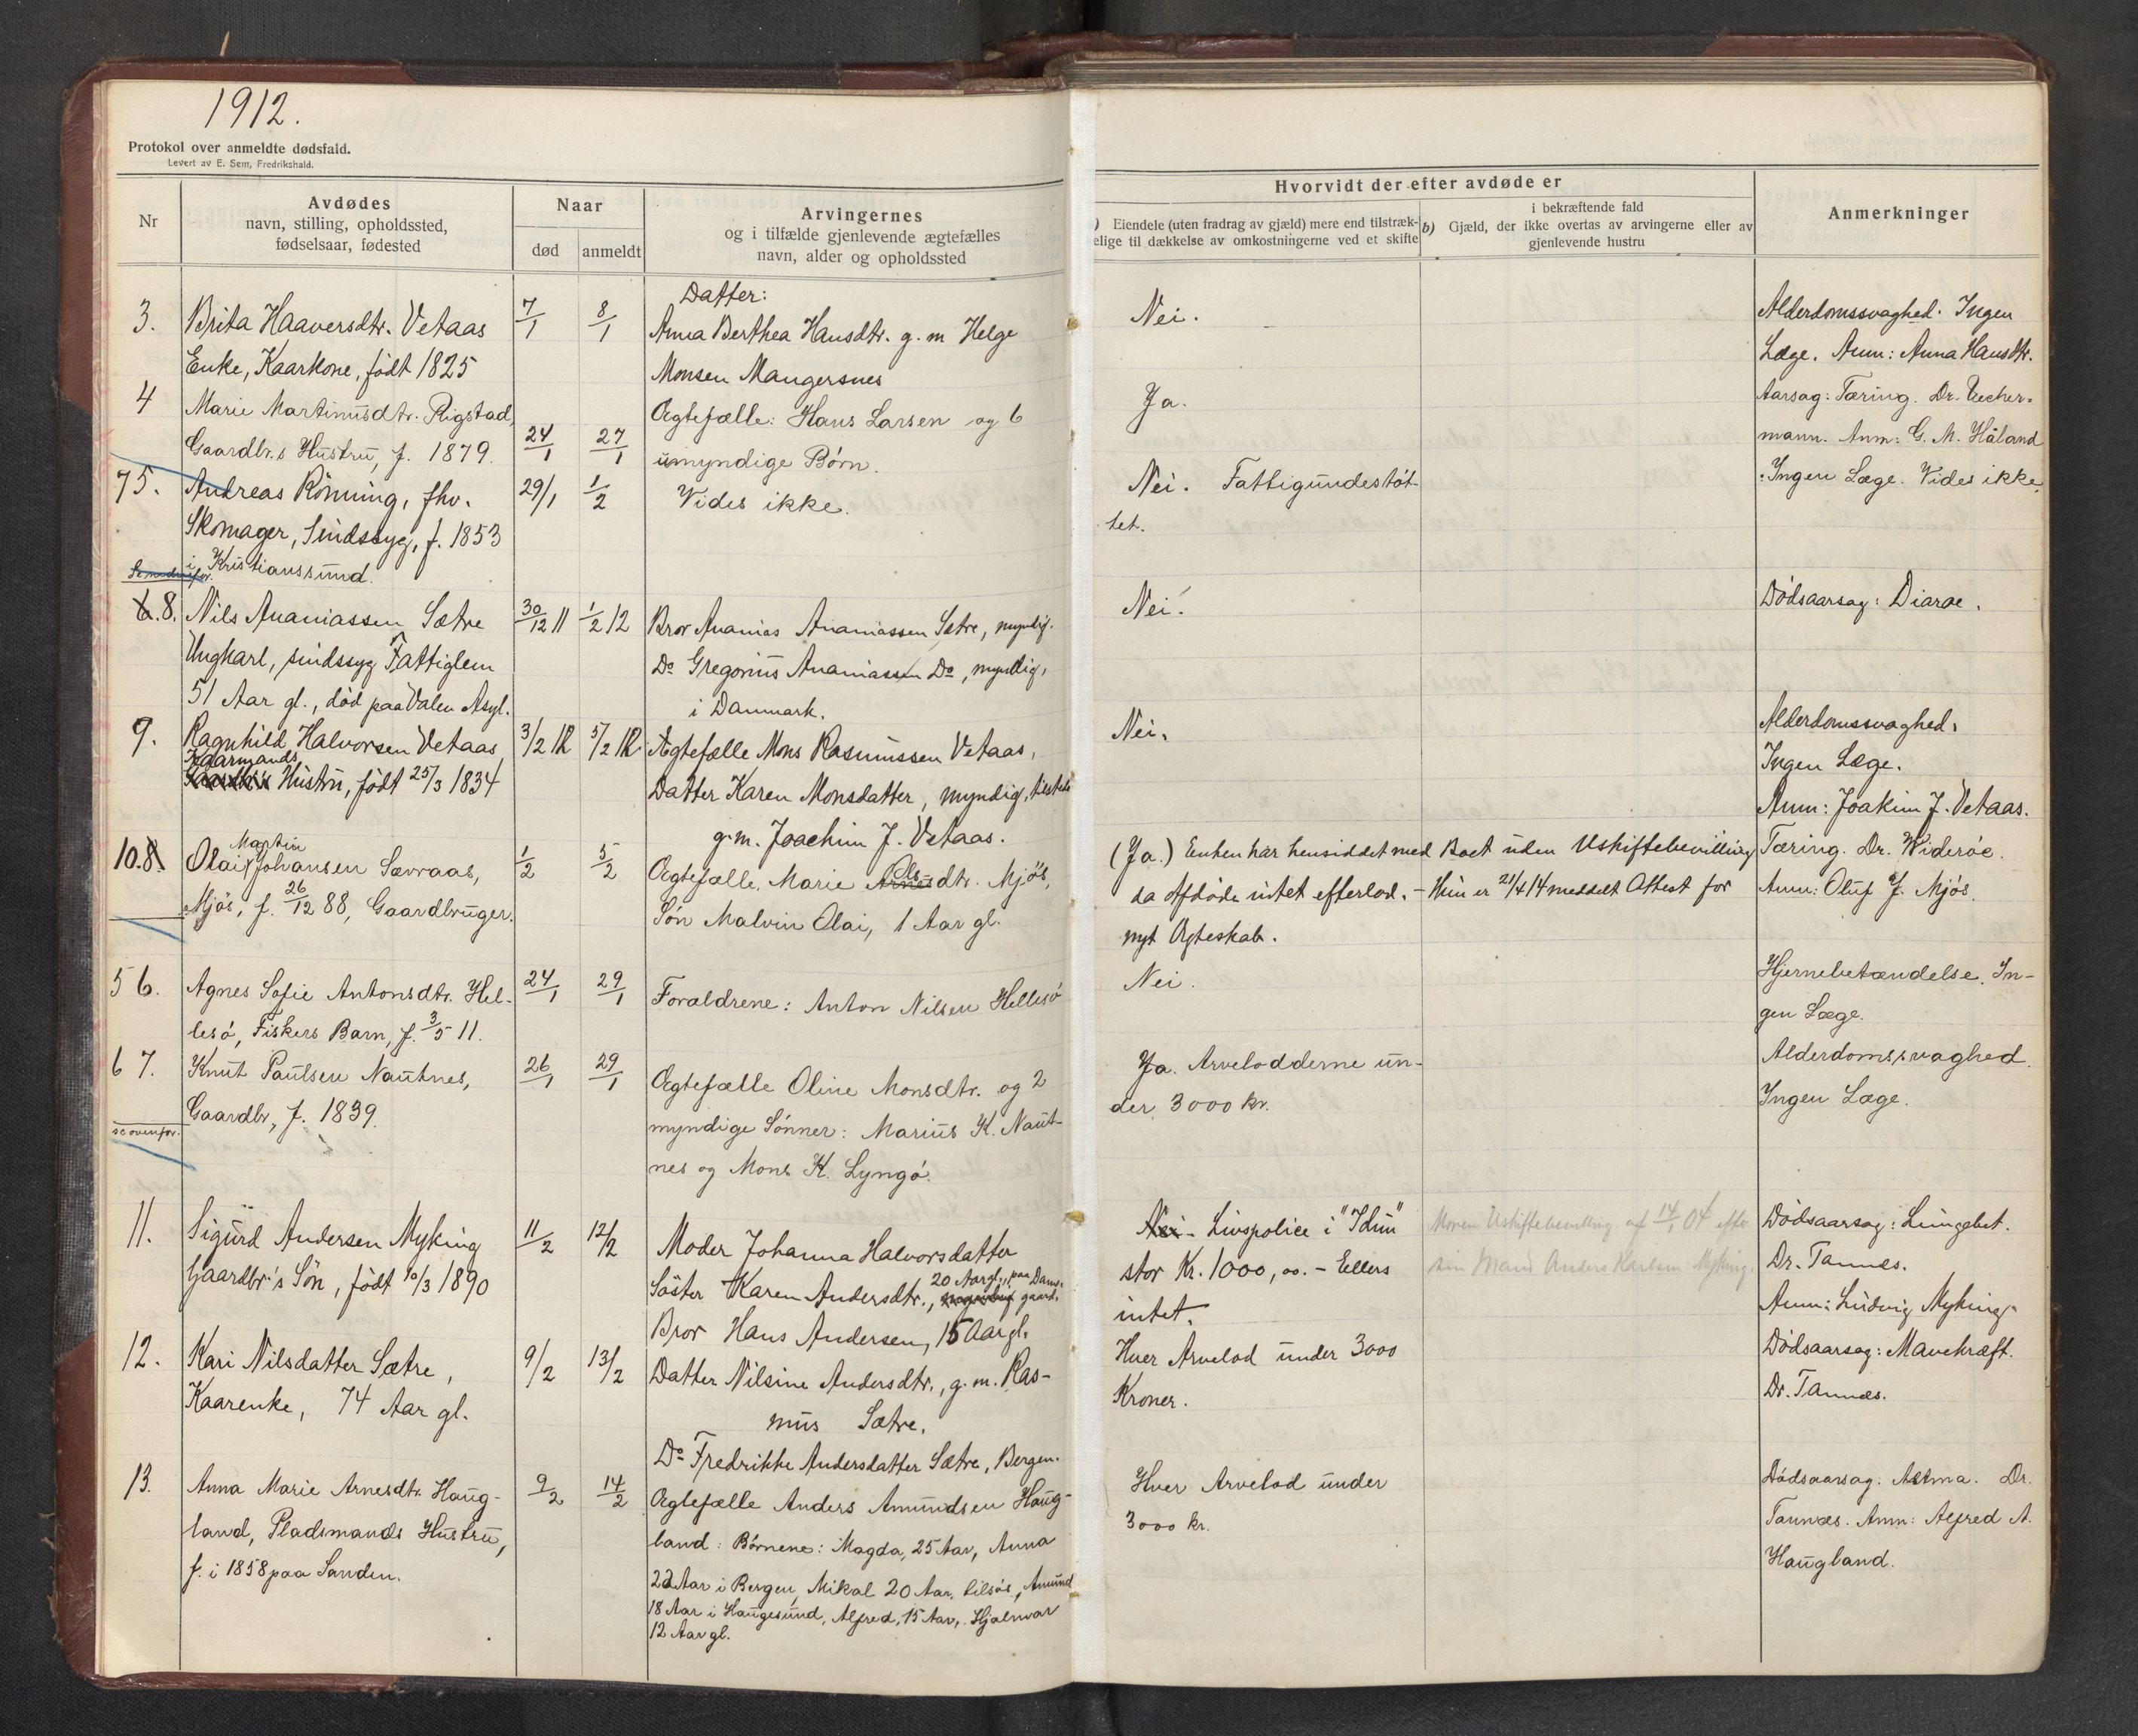 1912.
Protokol over anmeldte dødsfald.
Levert av E. Sem, Fredrikshald.
Nr
Avdødes
navn, stilling, opholdssted,
fødselsaar, fødested
Naar
død
anmeldt
Arvingernes
og i tilfælde gjenlevende ægtefælles
navn, alder og opholdssted
Hvorvidt der efter avdøde er
) Eiendele (uten fradrag av gjæld) mere end tilstræk-
elige til dækkelse av omkostningerne ved et skifte
i bekræftende fald
b) Gjæld, der ikke overtas av arvingerne eller av
gjenlevende hustru
Anmerkninger
3.
Brita Haaversdtr. Vetaas
Enke, Kaarkone, født 1825
7/1
8/1
Datter:
Anna Berthea Hansdtr. g.m Helge
Monsen Mangersnes
Nei.
Alderdomssvaghed. Ingen
Læge. Anm: Anna Hansdtr.
4
Marie Martinusdtr. Rigstad,
Gaardbr.s Hustru, f. 1879.
24/1
27/1
Ægtefælle: Hans Larsen og 6
umyndige Børn.
Ja.
Aarsag: Tæring. Dr. Uecher-
mann. Anm: G. M. Håland
75.
Andreas Rönning, fhv.
Skomager, Sindssyg, f. 1853
i Kristianssund.
29/1
1/2
Vides ikke.
Nei. Fattigunderstøt-
tet.
Ingen Læge. Vides ikke.
Se nedenfor.
6.8.
Nils Ananiassen Sætre
Ungkarl, sindssyg Fattiglem
51 Aar gl., död paa Valen Asyl.
30/12 11
1/2 12
Bror Ananias Ananiassen Sætre, myndig.
Do Gregorius Ananiassen Do, myndig,
i Danmark.
Nei.
Dödsaarsag: Diaræ.
9.
Ragnhild Halvorsen Vetaas
Kaarmands
Hustru, født 25/3 1834
3/2 12
5/2 12
Ægtefælle Mons Rasmussen Vetaas,
Datter Karen Monsdatter, myndig,
g.m. Joachim J. Vetaas.
Nei.
Alderdomssvaghed.
Ingen Læge.
Anm: Joakim J. Vetaas.
10.8.
Martin
Olai Johansen Sævraas,
Mjös, f. 26/12 88, Gaardbruger.
1/2
5/2
Ægtefælle, Marie Arnesdtr. Mjös,
Søn Malvin Olai, 1 Aar gl.
(Ja.) Enken har hensiddet med Boet uden Uskiftebevilling
da Afdöde intet efterlod. – Hun er 21/4 14 meddelt Attest for
nyt Ægteskab.
Tæring. Dr. Widerøe.
Anm: Oluf J. Mjös.
5 6.
Agnes Sofie Antonsdtr. Hel-
lesö, Fiskers Barn, f. 3/5 11.
24/1
29/1
Forældrene: Anton Nilsen Hellesö
Nei.
Hjernebetændelse. In-
gen Læge.
6 7.
Knut Paulsen Nautnes,
Gaardbr, f. 1839.
se ovenfor.
26/1
29/1
Ægtefælle Oline Monsdtr. og 2
myndige Sønner: Marius K. Naut-
nes og Mons K. Lyngö.
Ja. Arvelodderne un-
der 3000 kr.
Alderdomssvaghed.
Ingen Læge.
11.
Sigurd Andersen Myking
Gaardbr's Sön, født 10/3 1890
11/2
12/2
Moder Johanna Halvorsdatter
Söster Karen Andersdtr., 20 Aar gl., paa Dams-
gaard.
Bror Hans Andersen, 15 Aar gl.
Nei – Livspolice i "Idun"
stor Kr. 1000,00. – Ellers
intet.
Moren Uskiftebevilling af 14/1 04 efter
sin Mand Anders Karlsen Myking.
Dödsaarsag: Lungebet.
Dr. Tannæs.
Anm: Ludvig Myking.
12.
Kari Nilsdatter Sætre,
Kaarenke, 74 Aar gl.
9/2
13/2
Datter Nilsine Andersdtr., g.m. Ras-
mus Sætre.
Do Fredrikke Andersdatter Sætre, Bergen.
Hver Arvelod under 3000
Kroner.
Dödsaarsag: Mavekræft.
Dr. Tannæs.
13.
Anna Marie Arnesdtr. Haug-
land, Pladsmands Hustru,
f. i 1858 paa Sanden.
9/2
14/2
Ægtefælle Anders Amundsen Haug-
land: Børnene: Magda, 25 Aar, Anna
22 Aar i Bergen, Mikal 20 Aar, tilsös, Amund
18 Aar i Haugesund, Alfred, 15 Aar, Hjalmar
12 Aar gl.
Hver Arvelod under
3000 kr.
Dödsaarsag. Astma. Dr.
Tannæs. Anm: Alfred A.
Haugland.